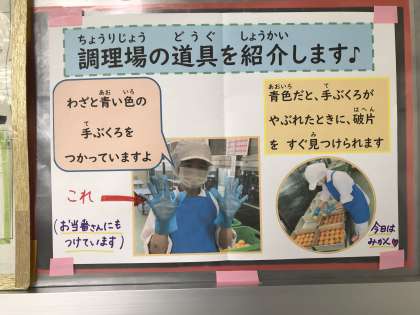 ちょうりじょう どうぐ しょうかい
調理場の道具を紹介します♪
あお いろ
わざと青い色の
て
手ぶくろを
つかっていますよ
あおいろ て
青色だと、手ぶくろが
はへん
やぶれたときに、破片
み
を すぐ見つけられます
これ
(お当番さんにも
つけています)
今日は
みかん♥